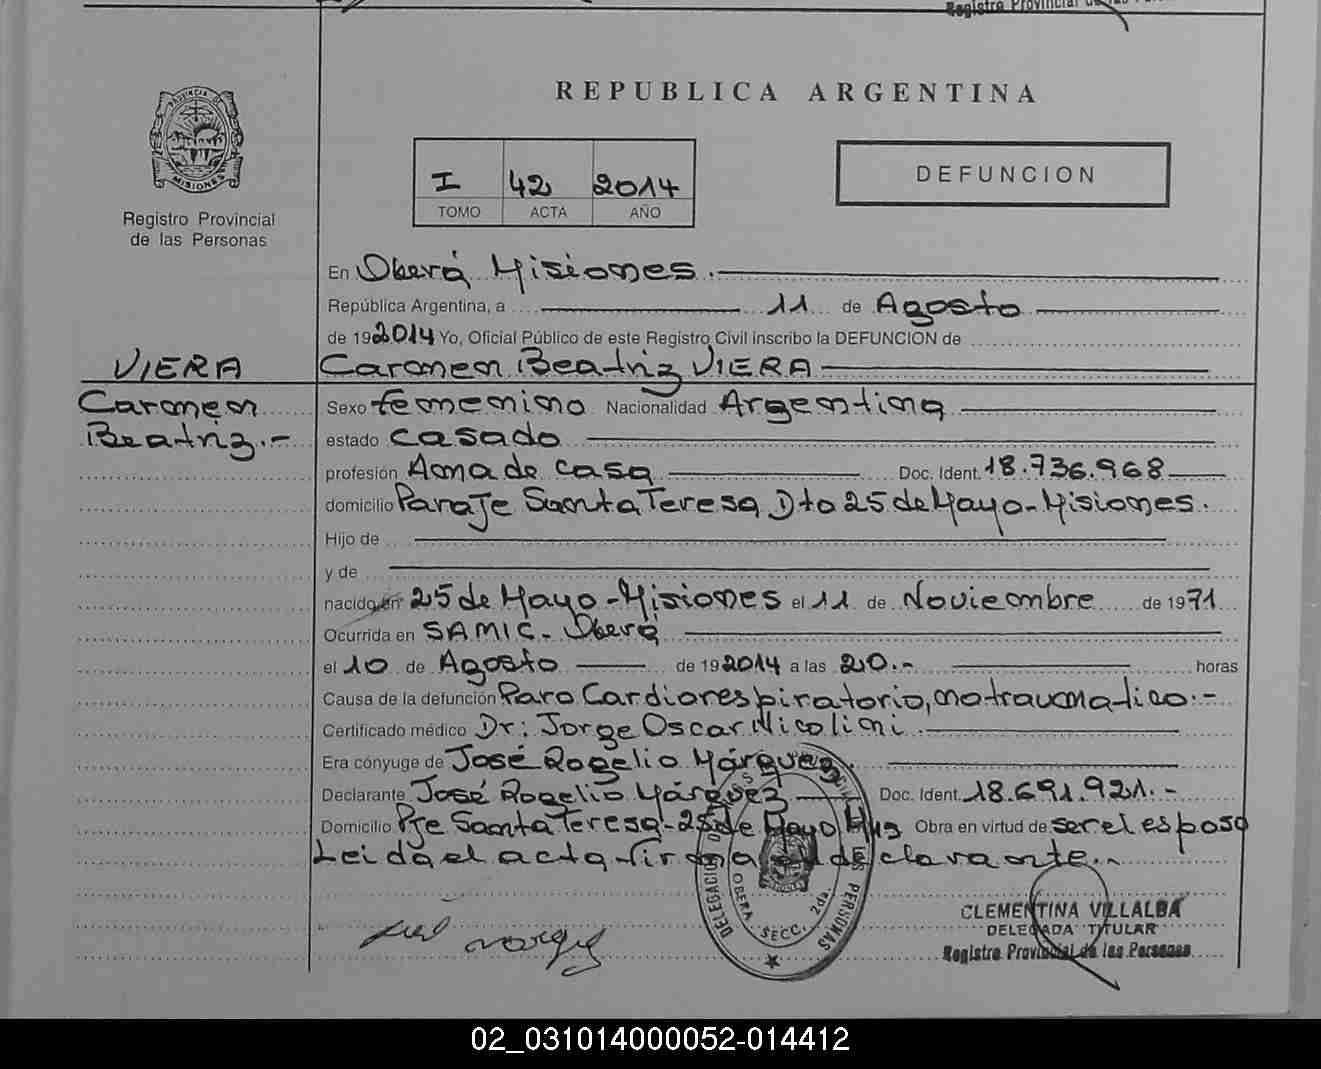 Registro Provincial de las Personas
REPUBLICA ARGENTINA
PROVINCIA DE
MISIONES
Registro Provincial
de las Personas
I 42 2014
TOMO ACTA AÑO
DEFUNCION
En Oberá Misiones.
República Argentina, a 11 de Agosto
de 192014 Yo, Oficial Público de este Registro Civil inscribo la DEFUNCION de
VIERA Carmen Beatriz VIERA
Carmen
Beatriz.-
Sexo femenino Nacionalidad Argentina
estado casado
profesión Ama de casa Doc. Ident. 18.736.968
domicilio Paraje Santa Teresa Dto 25 de Mayo-Misiones.
Hijo de
y de
nacido en 25 de Mayo-Misiones el 11 de Noviembre de 1971
Ocurrida en SAMIC. Oberá
el 10 de Agosto de 192014 a las 20.- horas
Causa de la defunción Paro Cardiorespiratorio, no traumatico.-
Certificado médico Dr: Jorge Oscar Nicolini.
Era cónyuge de José Rogelio Márquez.
Declarante José Rogelio Márquez Doc. Ident. 18.691.921.-
Domicilio Pje Santa Teresa-25 de Mayo Mns Obra en virtud de ser el esposo
Leida el acta firma el declarante.
DELEGACION
PERSONAS
OBERA SECC. 2da.
CLEMENTINA VILLALBA
DELEGADA TITULAR
Registro Provincial de las Personas
02_031014000052-014412